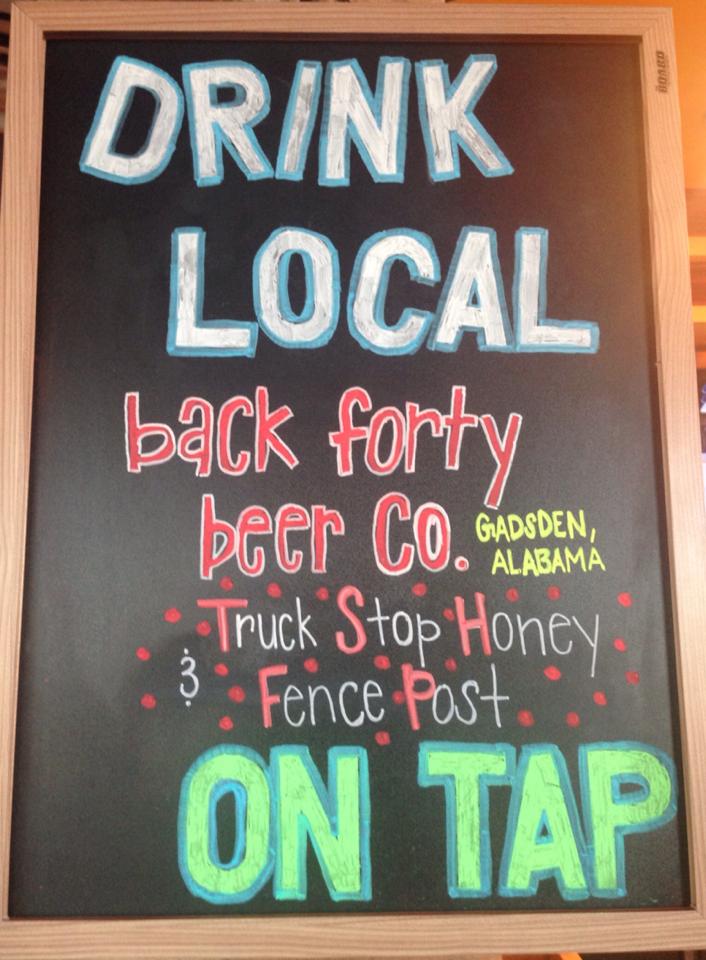 DRINK
LOCAL
back forty
beer Co.
GADSDEN,
ALABAMA
Truck Stop Honey
& Fence Post
ON TAP